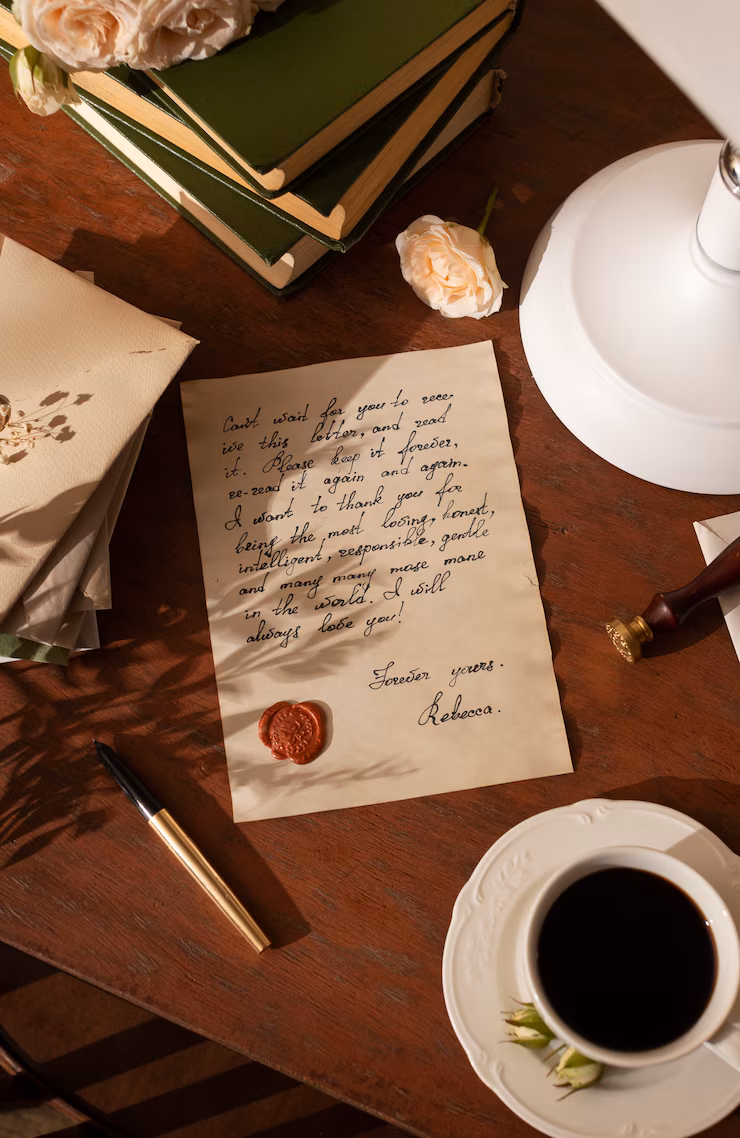 Can't wait for you to rece-
ive this letter, and read
it. Please keep it forever,
re-read it again and again.
I want to thank you for
being the most loving, honest,
intelligent, responsible, gentle
and many many mose mane
in the world. I will
always love you!
Forever yours.
Rebecca.